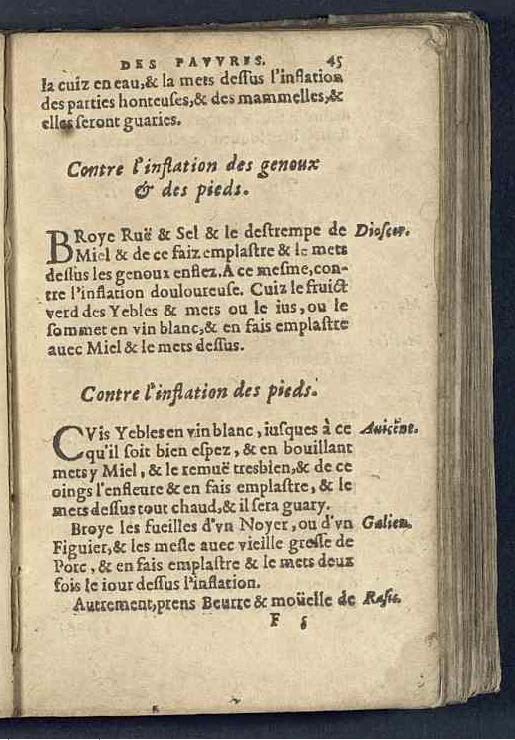 DES PAVVRES. 45
la cuiz en eau,& la mets dessus l'inflation
des parties honteuses,& des mammelles,&
elles seront guaries.
Contre l'inflation des genoux
& des pieds.
BRoye Ruë & Sel & le destrempe de Dioscor.
Miel & de ce faiz emplastre & le mets
dessus les genoux enflez. A ce mesme,con-
tre l'inflation douloureuse. Cuiz le fruict
verd des Yebles & mets ou le ius, ou le
sommet en vin blanc,& en fais emplastre
auec Miel & le mets dessus.
Contre l'inflation des pieds.
CVis Yebles en vin blanc, iusques à ce Auicene.
qu'il soit bien espez, & en bouillant
mets y Miel, & le remuë tresbien,& de ce
oings l'enfleure & en fais emplastre, & le
mets dessus tout chaud,& il sera guary.
Broye les fueilles d'vn Noyer, ou d'vn Galien.
Figuier,& les mesle auec vieille gresse de
Porc, & en fais emplastre & le mets deux
fois le iour dessus l'inflation.
Autrement,prens Beurre & moüelle de Rasis.
F 5